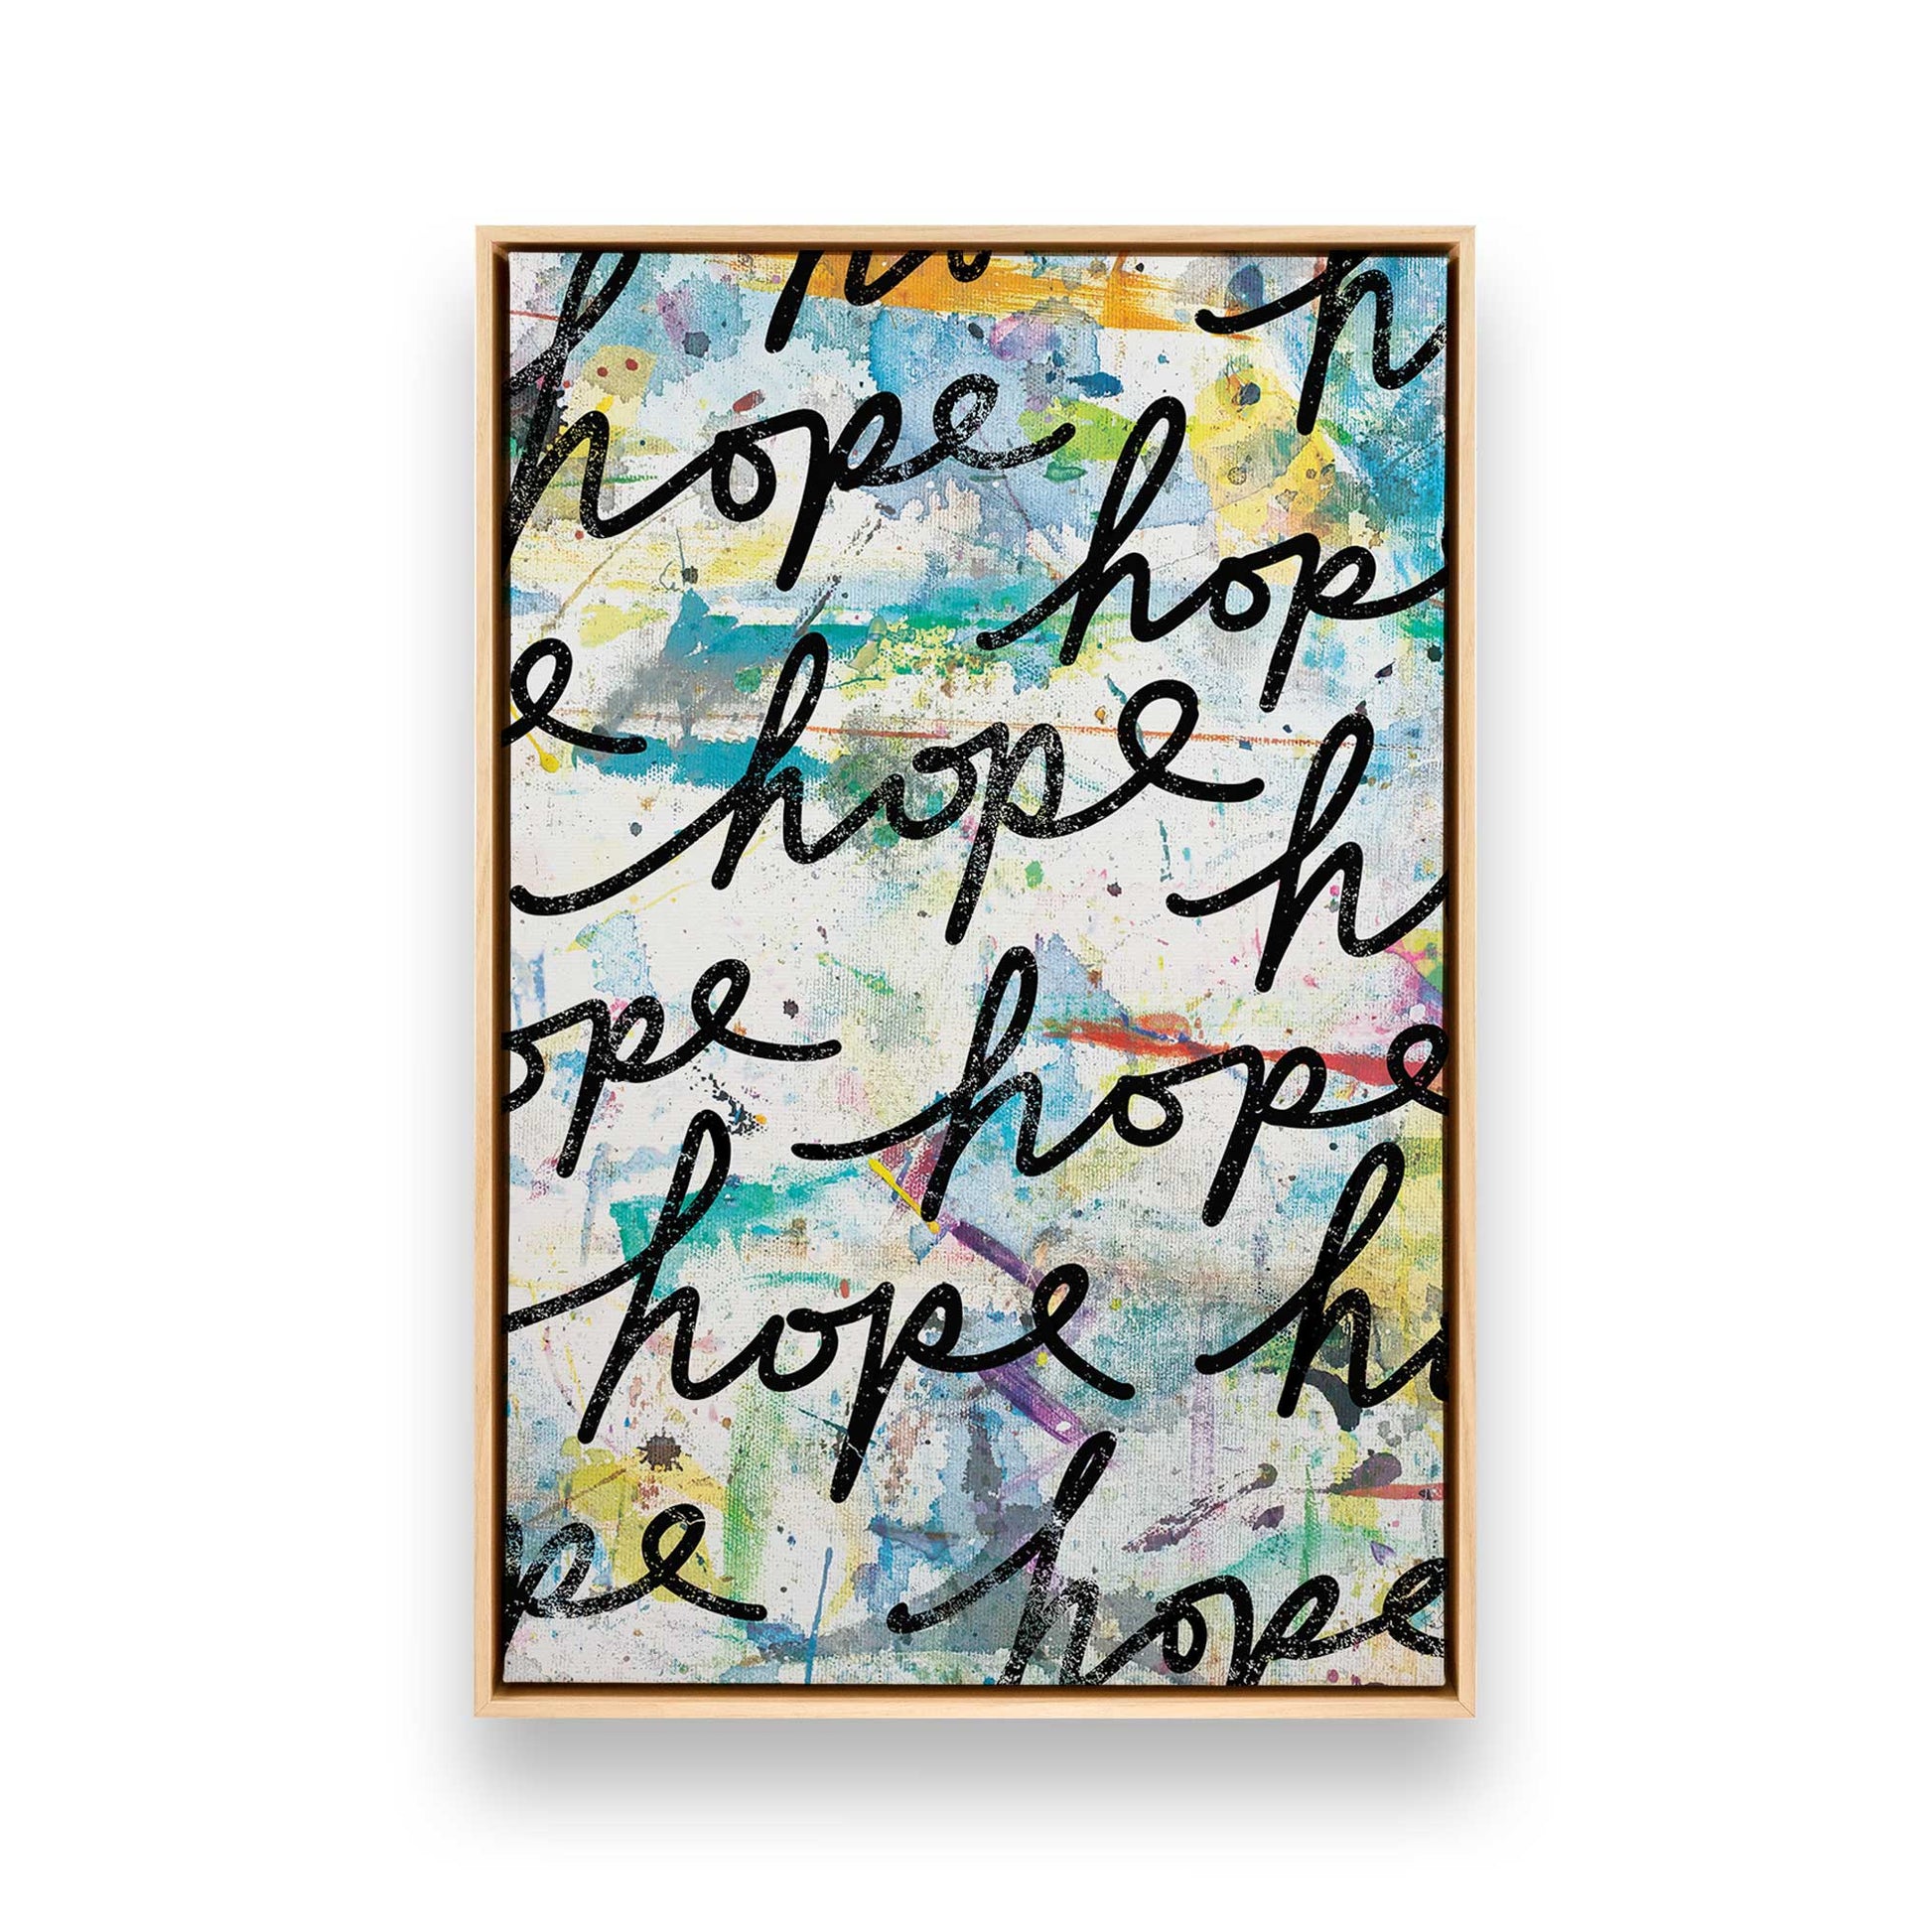 h
hope
hop
e hope
h
ope hope
hope
h
pe hope